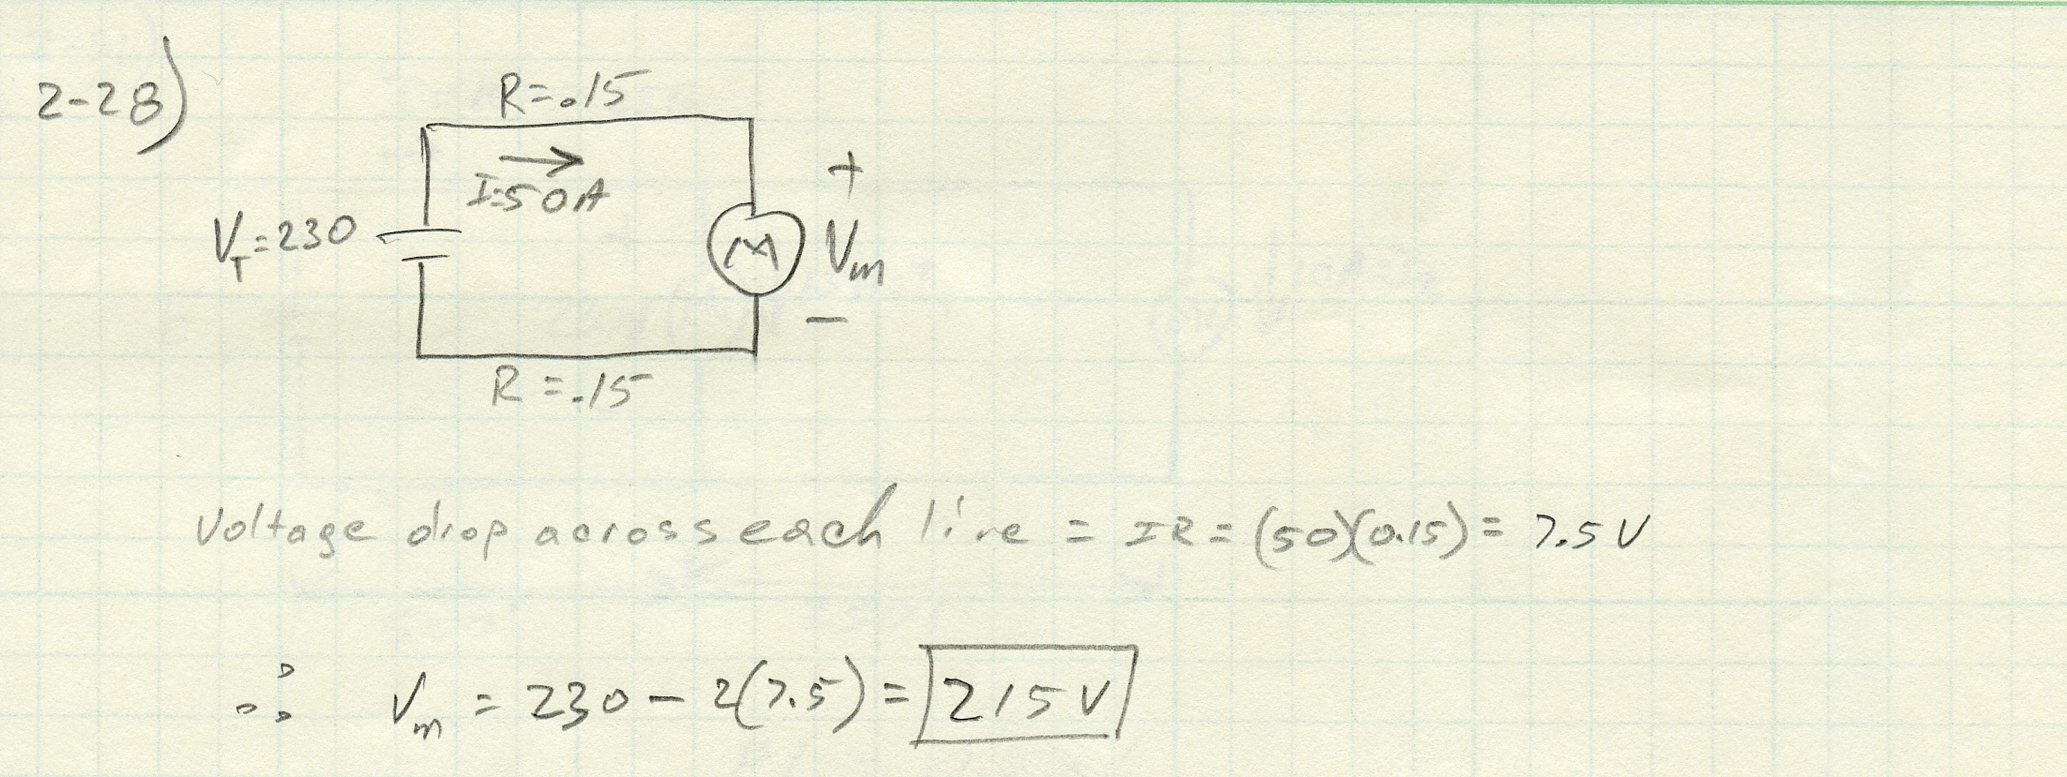 2-28)
R=.15
I=50A
V_T=230
M
+
Vm
-
R=.15
Voltage drop across each line = IR = (50)(0.15) = 7.5 V
∴ Vm = 230 - 2(7.5) = 215 V